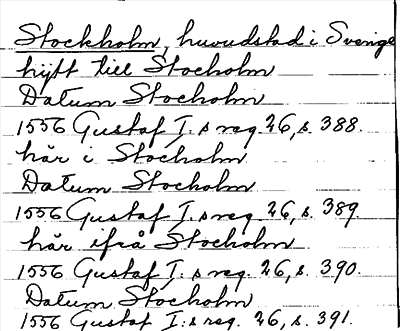 Stockholm, huvudstad i Sverige
hijtt till Stocholm
Datum Stocholm
1556 Gustaf I:s reg. 26, s. 388.
här i Stocholm
Datum Stocholm
1556 Gustaf I:s reg. 26, s. 389.
här ifrå Stocholm
1556 Gustaf I:s reg. 26, s. 390.
Datum Stocholm
1556 Gustaf I:s reg. 26, s. 391.